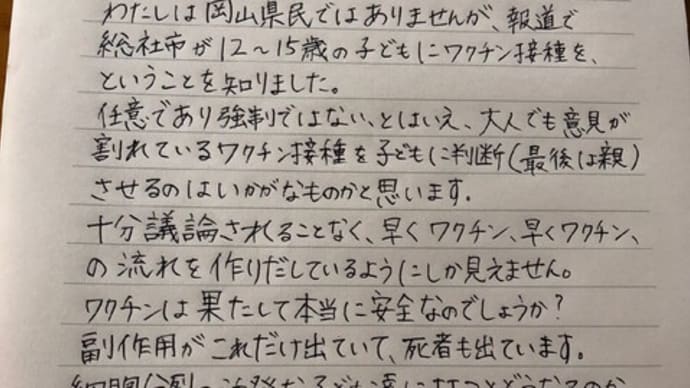 わたしは岡山県民ではありませんが、報道で
総社市が12〜15歳の子どもにワクチン接種を、
ということを知りました。
任意であり強制ではない、とはいえ、大人でも意見が
割れているワクチン接種を子どもに判断(最後は親)
させるのはいかがなものかと思います.
十分議論されることなく、早くワクチン、早くワクチン、
の流れを作りだしているようにしか見えません。
ワクチンは果たして本当に安全なのでしょうか?
副作用がこれだけ出ていて、死者も出ています。
細胞分裂の活発な子ども達に打つとどうなるのか